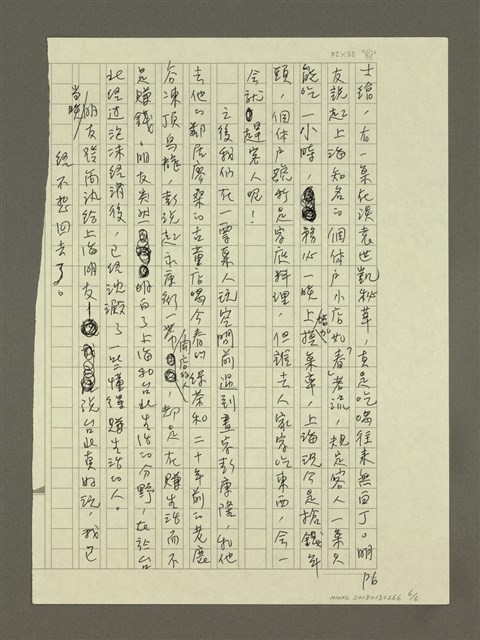 P6
，有一桌在演袁世凱，真是吃喝往來無白丁。朋
友說起上海知名的個體戶小店如「春」者流，規定客人一桌只
能吃一小時，務必一晚上換桌率，上海現今是搶錢年
頭，個體戶號稱是家庭料理，但誰去人家家吃東西，會一
會就趕客人呢！
之後我們在一票人前遇到畫家彭康隆，和他
去他的鄰居廖桑的古董店喝今春的綠茶和二十年前的老鹿
谷凍頂烏龍，彭說起永康街一帶開店的人，都是在賺生活而不
是賺錢。朋友忽然明白了上海和台北生活的分野，在於台
北經過泡沫經濟後，已經沈澱了一些懂得賺生活的人。
當晚朋友發簡訊給上海朋友，說台北真好玩，我已
經不想回去了。
25×25
6/6